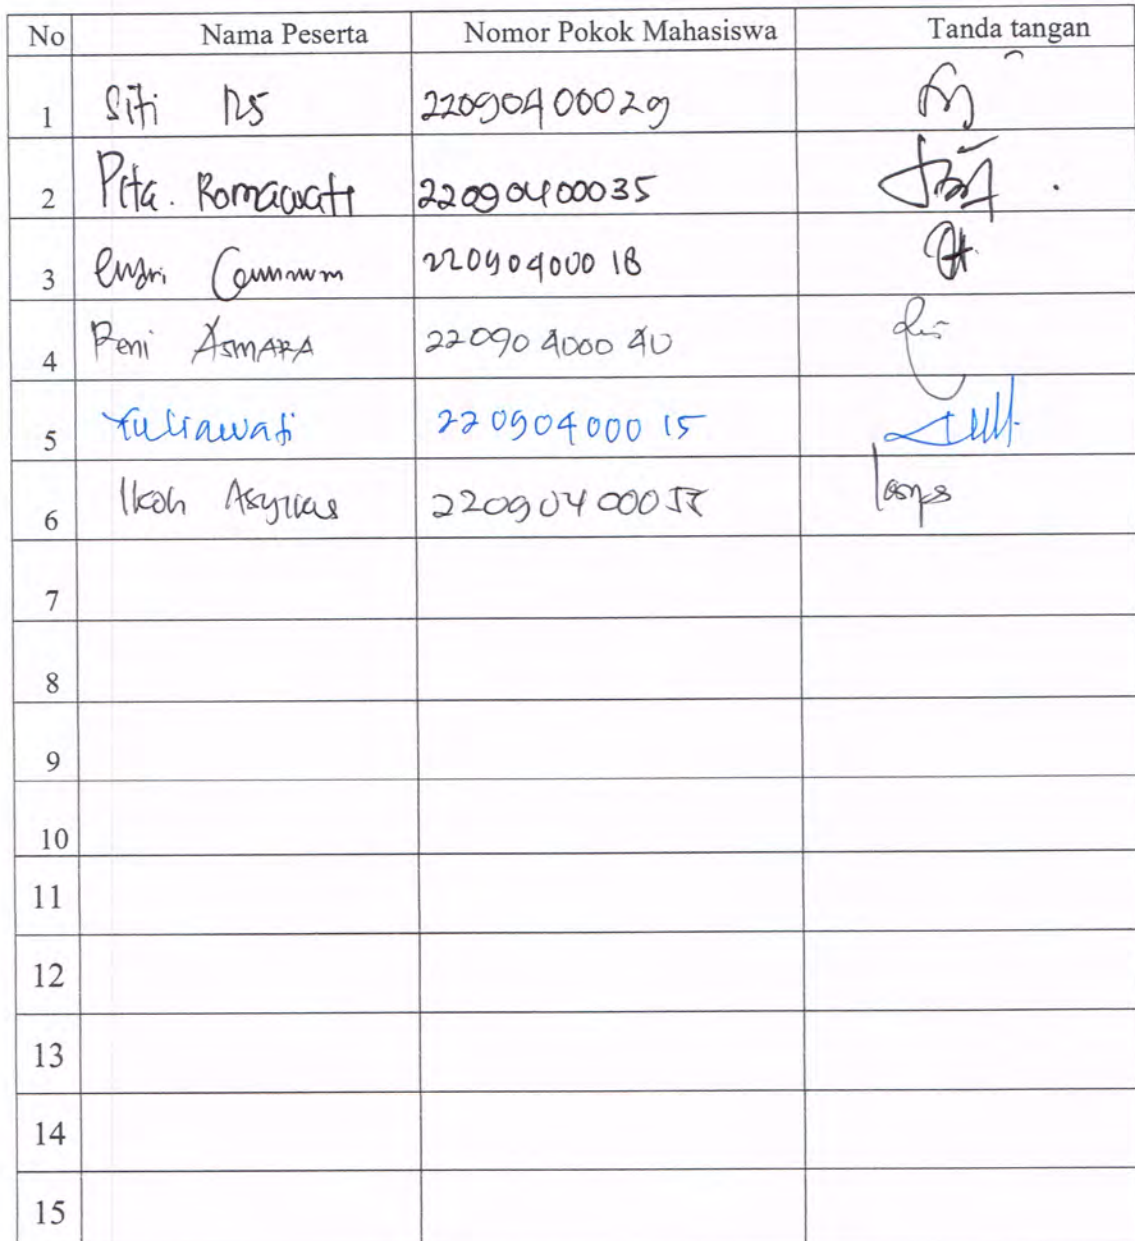 No Nama Peserta Nomor Pokok Mahasiswa Tanda tangan
1 Siti RS 22090400029
2 Pita. Romawati 22090400035
3 22090400018
4 Reni ASMARA 22090400040
5 Yuliawati 22090400015
6 Ikoh 220904000
7
8
9
10
11
12
13
14
15